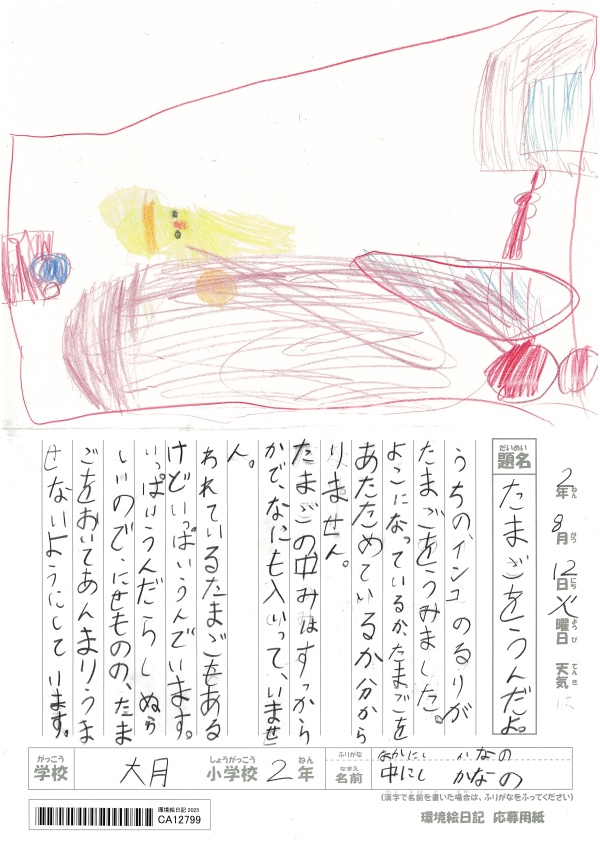 2年 8月 12日 火曜日 天気 は
ねん がつ にち ようび てんき
だいめい
題名 たまごをうんだよ。
うちの、インコのるりが
たまごをうみました。
よこになっているか、たまごを
あたためているか分から
りません。
たまごの中みはすっから
かで、なにも入いって、いませ
ん。
われているたまごもある
けどいっぱいうんでいます。
いっぱいうんだらしぬら
しいので、にせものの、たま
ごをおいてあんまりうま
せないようにしています。
がっこう しょうがっこう ねん
学校 大月 小学校 2年
ふりがな なかにし かなの
なまえ
名前 中にし かなの
(漢字で名前を書いた場合は、ふりがなをふってください)
環境絵日記 2025
CA12799
環境絵日記 応募用紙